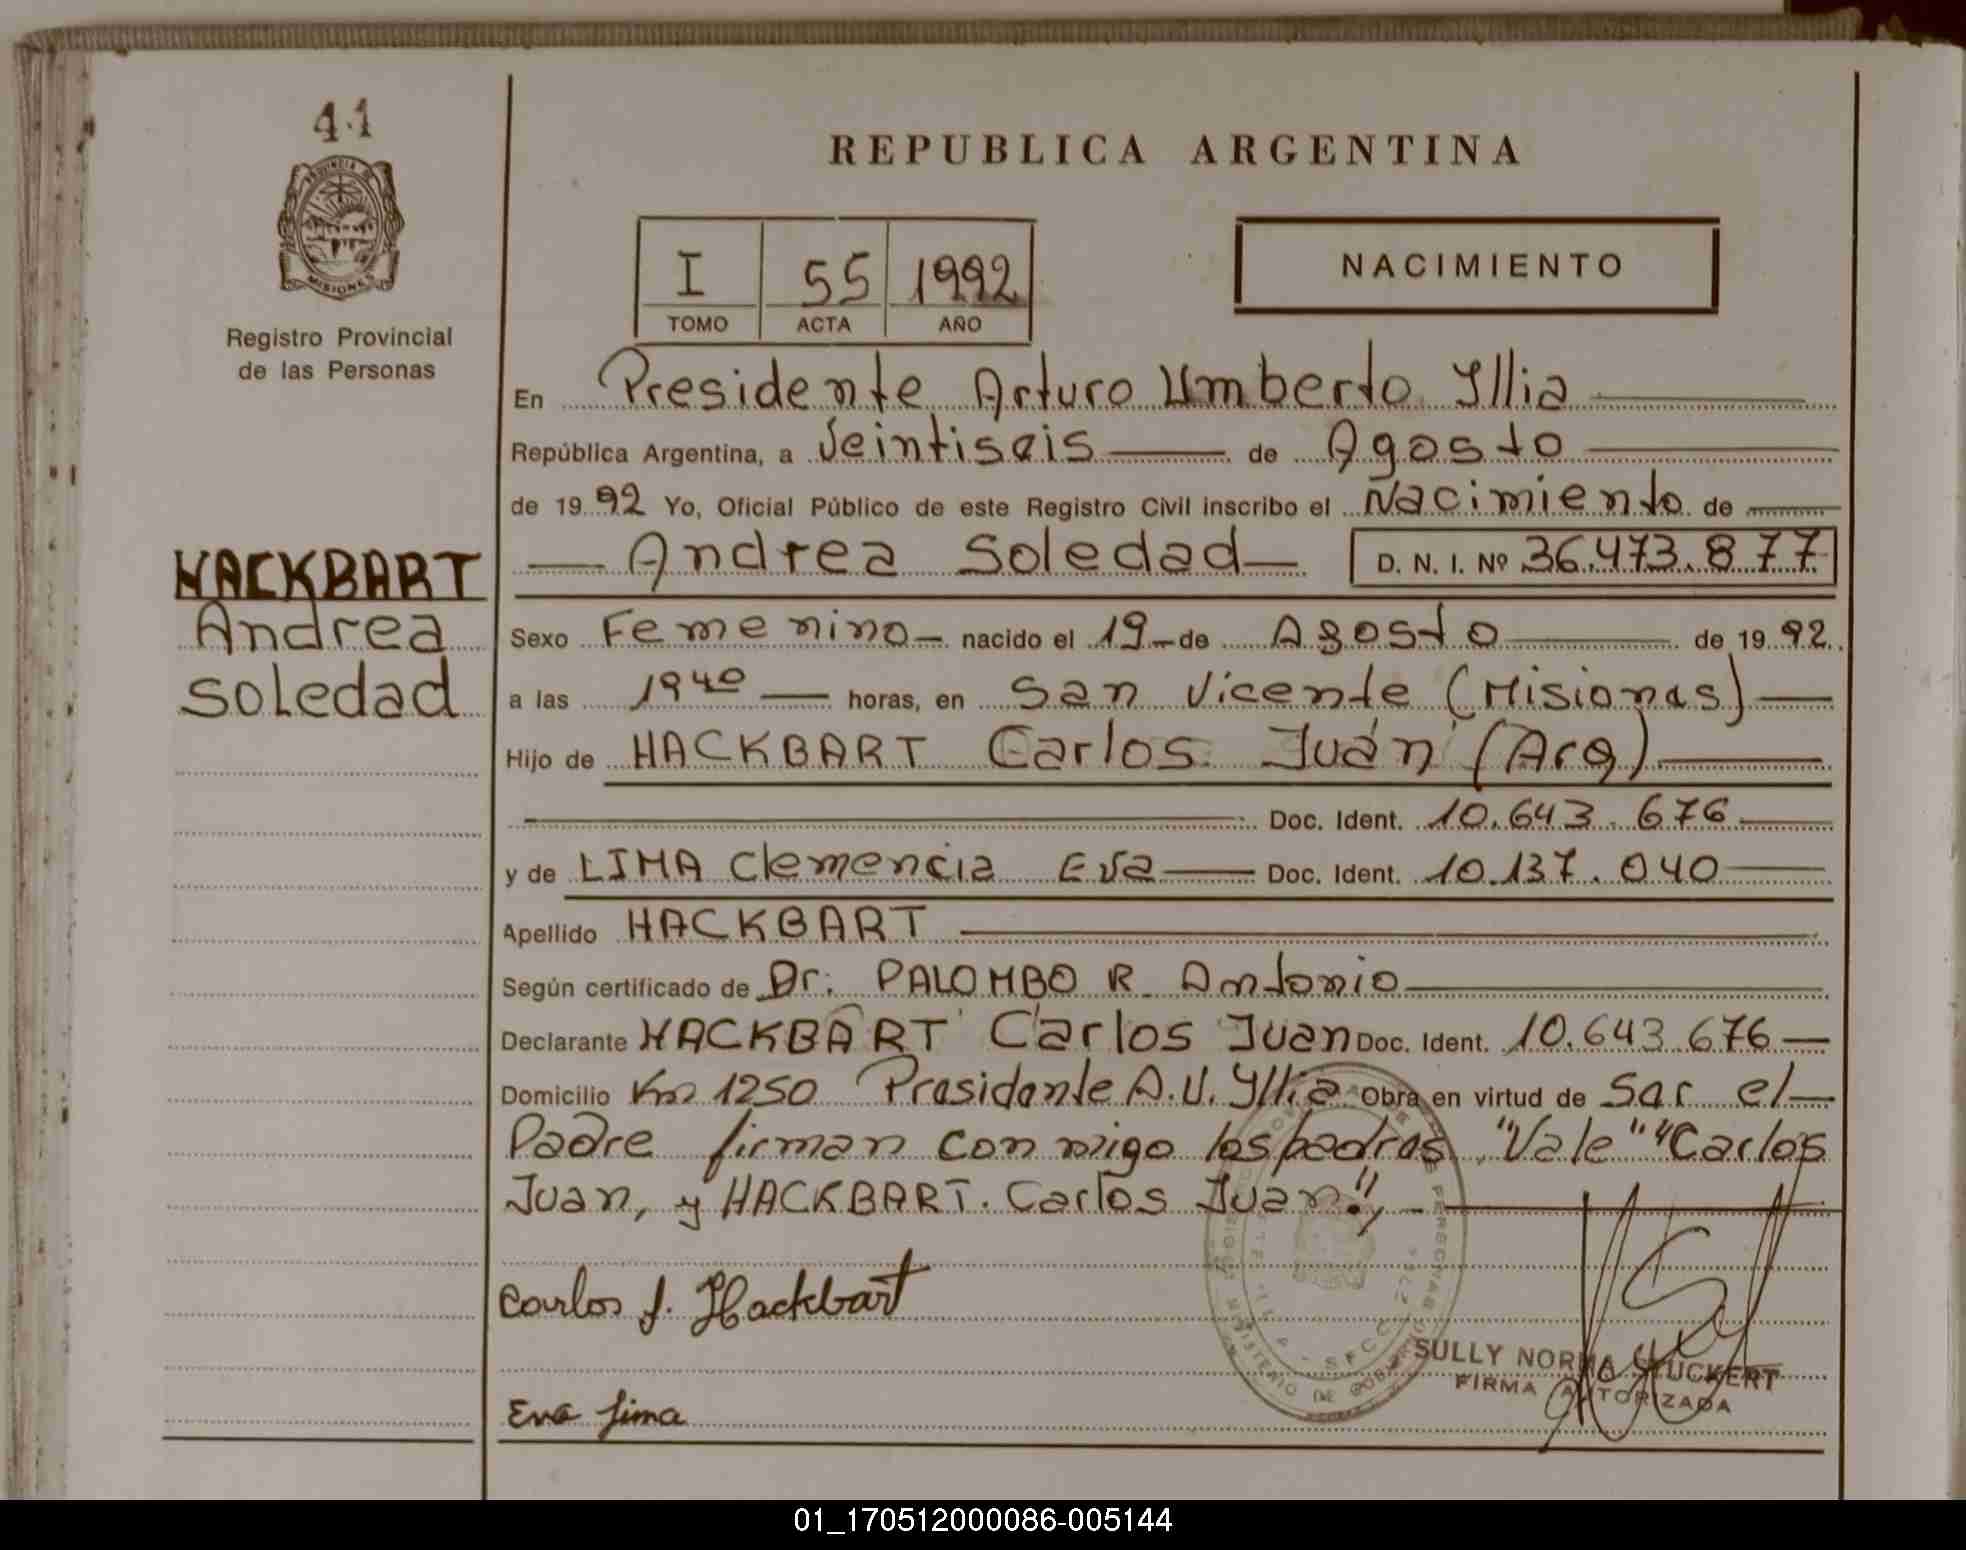 41
PROVINCIA DE
MISIONES
Registro Provincial
de las Personas
HACKBART
Andrea
Soledad
REPUBLICA ARGENTINA
I 55 1992
TOMO ACTA AÑO
NACIMIENTO
En Presidente Arturo Umberto Yllia
República Argentina, a Veintiseis de Agosto
de 1992 Yo, Oficial Público de este Registro Civil inscribo el Nacimiento de
Andrea Soledad D. N. I. Nº 36.473.877
Sexo Femenino nacido el 19 de Agosto de 1992.
a las 19 40 horas, en San Vicente (Misiones)
Hijo de HACKBART Carlos Juan (Arg)
Doc. Ident. 10.643.676
y de LIMA Clemencia Eva Doc. Ident. 10.137.040
Apellido HACKBART
Según certificado de Dr: PALOMBO R. Antonio
Declarante HACKBART Carlos Juan Doc. Ident. 10.643.676
Domicilio Km 1250 Presidente A.U. Yllia Obra en virtud de Ser el
Padre firman conmigo los padres "Vale" "Carlos
Juan, y HACKBART. Carlos Juan".
Carlos J. Hackbart
Eva Lima
MINISTERIO DE GOBIERNO
SULLY NORMA GLUCKERT
FIRMA AUTORIZADA
01_170512000086-005144